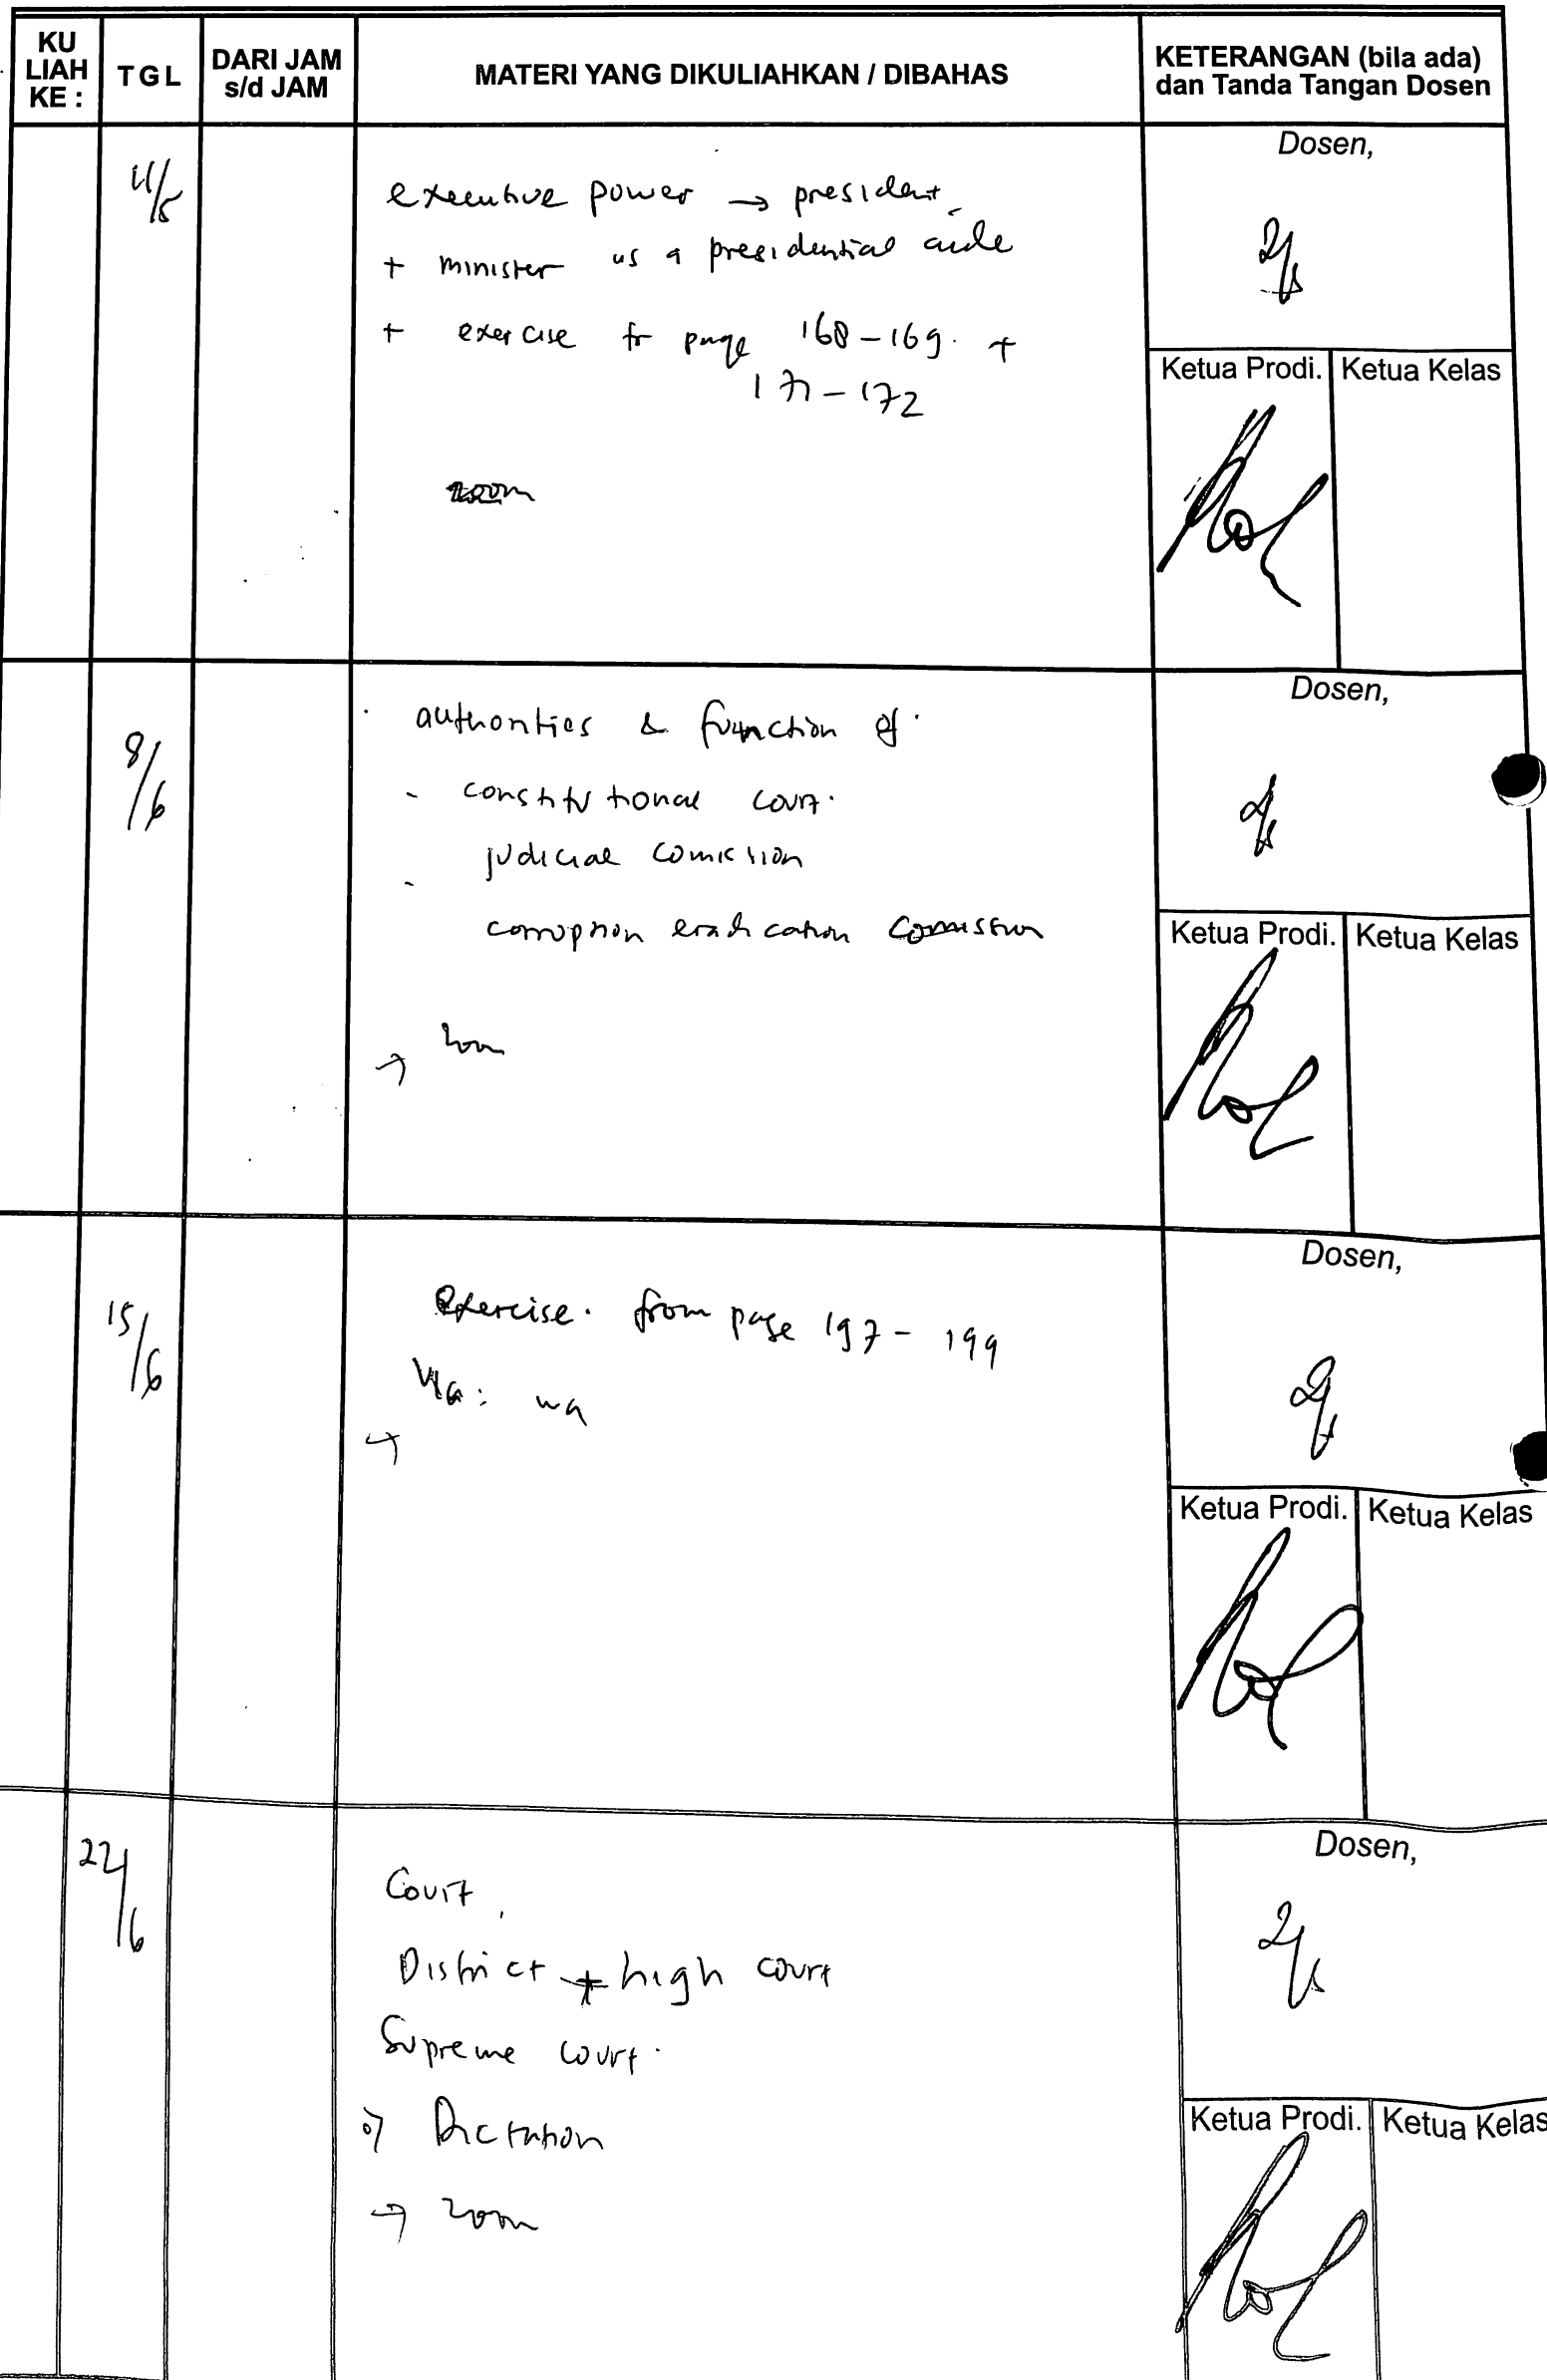 KU LIAH KE :
TGL
DARI JAM s/d JAM
MATERI YANG DIKULIAHKAN / DIBAHAS
KETERANGAN (bila ada) dan Tanda Tangan Dosen
executive power → president
+ minister as a presidential aide
+ exercise fr page 168 – 169. +
171 – 172
zoom
Dosen,
Ketua Prodi. Ketua Kelas
8/6
authorities & function of
- constitutional court.
judicial comission
-
corruption eradication comission
→ zoom
Dosen,
Ketua Prodi. Ketua Kelas
15/6
Exercise. from page 197 - 199
Via : wa
Dosen,
Ketua Prodi. Ketua Kelas
22/6
Court,
District + high court
Supreme court.
Dictation
→ zoom
Dosen,
Ketua Prodi. Ketua Kelas